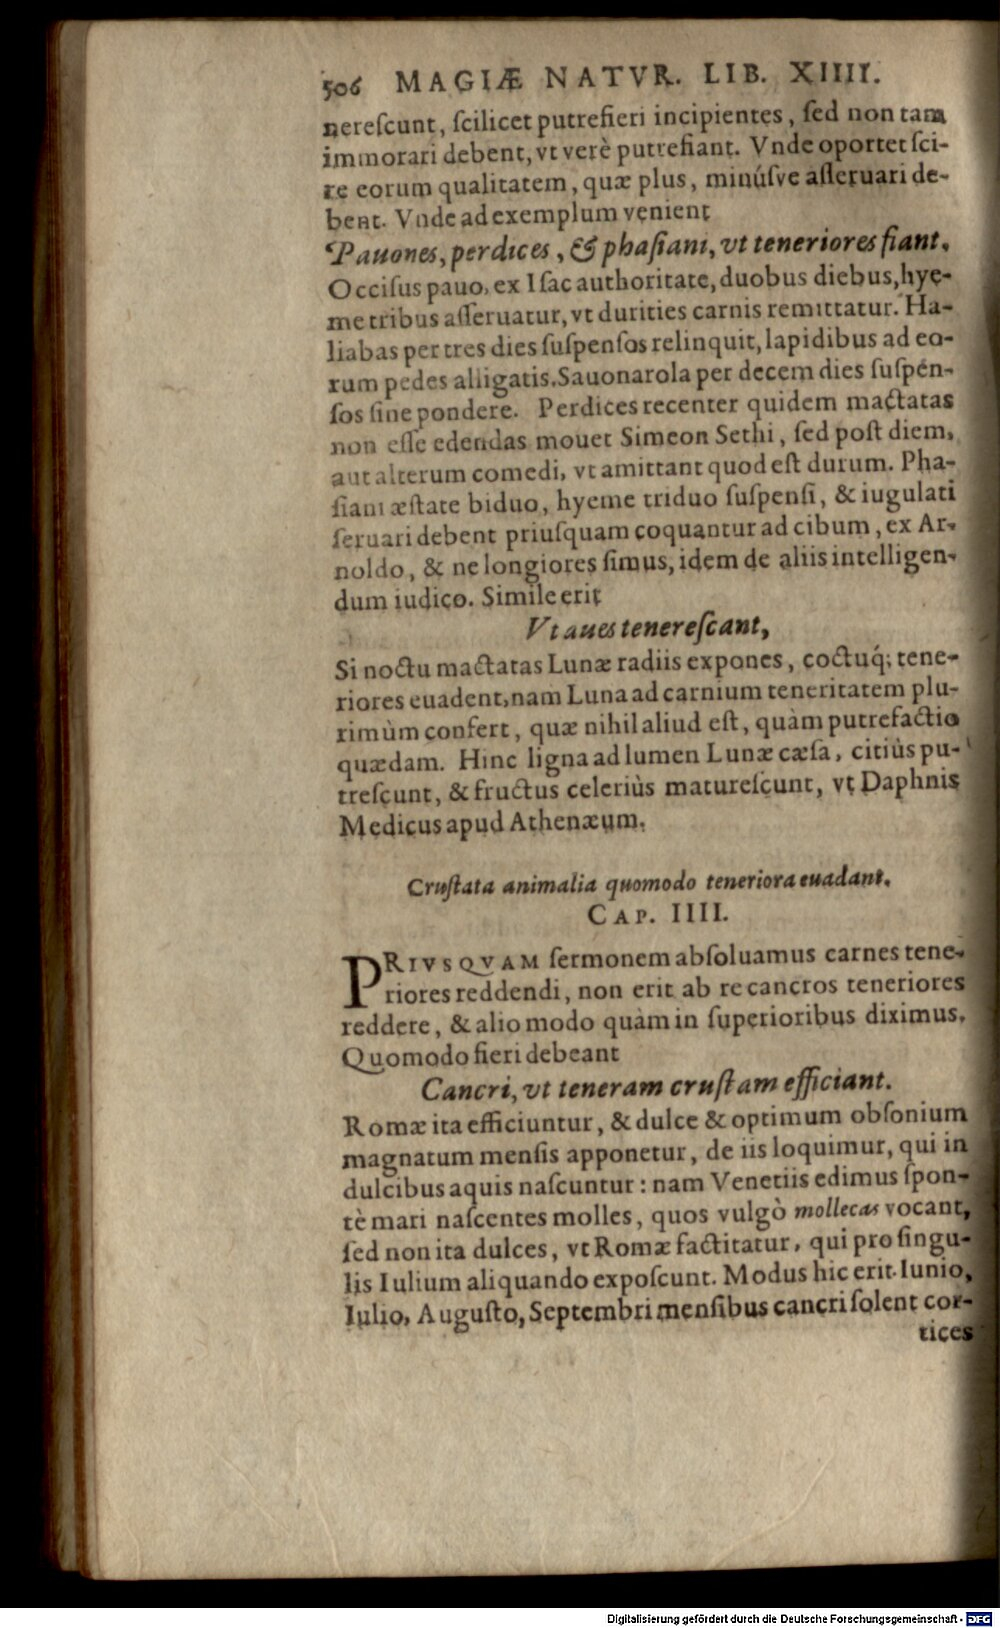 506 MAGIÆ NATVR. LIB. XIIII.
nerescunt, scilicet putrefieri incipientes, sed non tam
immorari debent, vt verè putrefiant. Vnde oportet sci-
re eorum qualitatem, quæ plus, minúsve asseruari de-
bent. Vnde ad exemplum venient
Pauones, perdices, & phasiani, vt teneriores fiant.
Occisus pauo, ex Isac authoritate, duobus diebus, hye-
me tribus asseruatur, vt durities carnis remittatur. Ha-
liabas per tres dies suspensos relinquit, lapidibus ad eo-
rum pedes alligatis. Sauonarola per decem dies suspen-
sos sine pondere. Perdices recenter quidem mactatas
non esse edendas mouet Simeon Sethi, sed post diem,
aut alterum comedi, vt amittant quod est durum. Pha-
siani æstate biduo, hyeme triduo suspensi, & iugulati
seruari debent priusquam coquantur ad cibum, ex Ar-
noldo, & ne longiores simus, idem de aliis intelligen-
dum iudico. Simile erit
Vt aues tenerescant,
Si noctu mactatas Lunæ radiis expones, coctuq́; tene-
riores euadent, nam Luna ad carnium teneritatem plu-
rimùm confert, quæ nihil aliud est, quàm putrefactio
quædam. Hinc ligna ad lumen Lunæ cæsa, citiùs pu-
trescunt, & fructus celeriùs maturescunt, vt Daphnis
Medicus apud Athenæum.
Crustata animalia quomodo teneriora euadant.
CAP. IIII.
PRIVSQVAM sermonem absoluamus carnes tene-
riores reddendi, non erit ab re cancros teneriores
reddere, & alio modo quàm in superioribus diximus.
Quomodo fieri debeant
Cancri, vt teneram crustam efficiant.
Romæ ita efficiuntur, & dulce & optimum obsonium
magnatum mensis apponetur, de iis loquimur, qui in
dulcibus aquis nascuntur: nam Venetiis edimus spon-
tè mari nascentes molles, quos vulgò mollecas vocant,
sed non ita dulces, vt Romæ factitatur, qui pro singu-
lis Iulium aliquando exposcunt. Modus hic erit. Iunio,
Iulio, Augusto, Septembri mensibus cancri solent cor-
tices
Digitalisierung gefördert durch die Deutsche Forschungsgemeinschaft - DFG